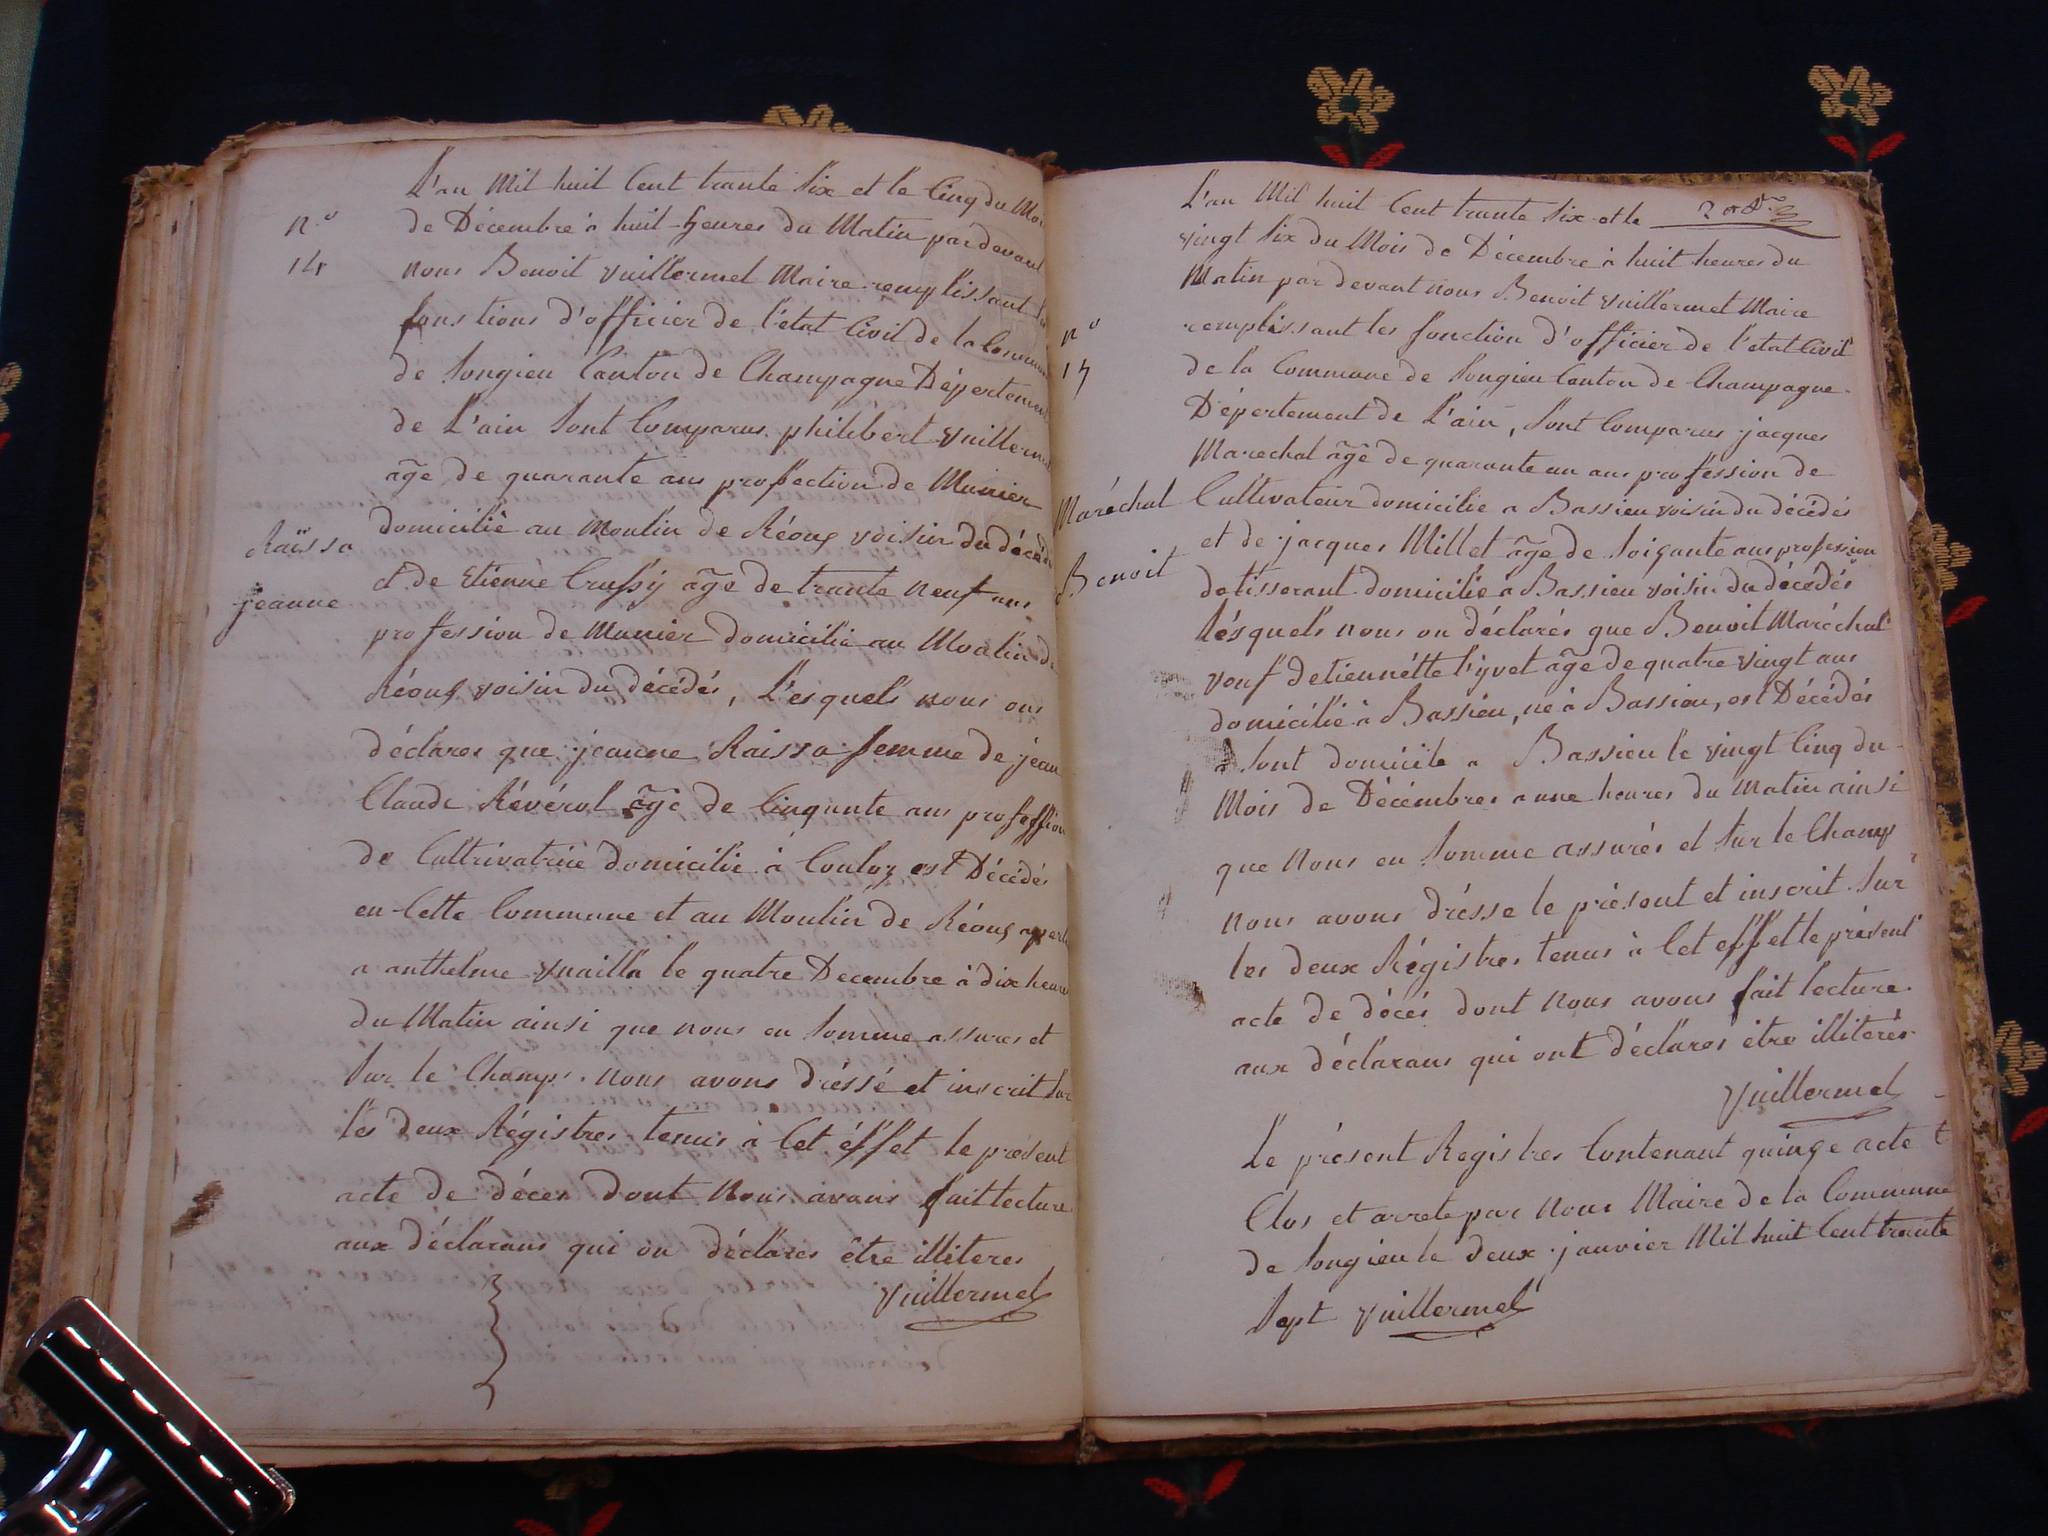 L'an Mil huit Cent trante Six et le Cinq du Moi
n.o
de Décembre à huit heures du Matin par devant
14
nous Benoit Vuillermet Maire remplissant les
fonstions d'officier de l'etat Civil de la Commune
de Songieu Canton de Champagne Dépertement
de L'ain Sont Comparus philibert Vuillermet
âge de quarante ans profection de Munier
domicilié au Moulin de Réoux voisin du décédé
Raissa
et de Etienne Crussy âge de trante neuf ans
jeanne
profession de Munier domicilié au Moulin de
Réoux voisin du décédés, Lesquels nous ons
déclares que jeanne Raissa femme de jean
Claude Révérol âge de Cinqunte ans profession
de Cultrivatrice domicilié à Couloz est Décédés
en Cette Commune et au Moulin de Réoux apert
a anthelme Vuailla le quatre Decembre à dix heures
du Matin ainsi que nous en Somme assures et
Sur le Champs nous avons dréssé et inscrit Sur
les deux Régistres tenus à Cet éffet le présent
acte de déces dont Nous avons fait lecture
aux déclarans qui on déclares être illiteres
Vuillermet
L'an Mil huit Cent trante Six et le
vingt Six du Mois de Décembre à huit heures du
Matin par devant nous Benoit Vuillermet Maire
remplissant les fonction d'officier de l'etat Civil
n.o
de la Commune de Songieu Canton de Champagne
15
Dépertement de L'ain, Sont Comparus jacques
Marechal âgé de quarante un ans profession de
Maréchal
Cultivateur domicilié a Bassieu voisin du décédés
et de jacques Millet âge de Soixante ans profession
Benoit
de tisserant domicilié à Bassieu voisin du décédés
Lésquels nous on déclarés que Benoit Maréchal
veuf detiennétte Cyvet âge de quatre Vingt ans
domicilié à Bassieu, né à Bassieu, est Décédés
à Sont domicile a Bassieu le vingt Cinq du
Mois de Décembres a une heures du Matin ainsi
que nous en Somme assurés et Sur le Champ
nous avons drésse le présent et inscrit Sur
les deux Régistres tenus à Cet effet le présent
acte de décés dont nous avons fait lecture
aux déclarans qui ont déclares etre illiterés
Vuillermet
Le présent Registres Contenant quinze acte
Clos et arrete par nous Maire de la Commune
de Songieu le deux janvier Mil huit Cent trante
Sept Vuillermet